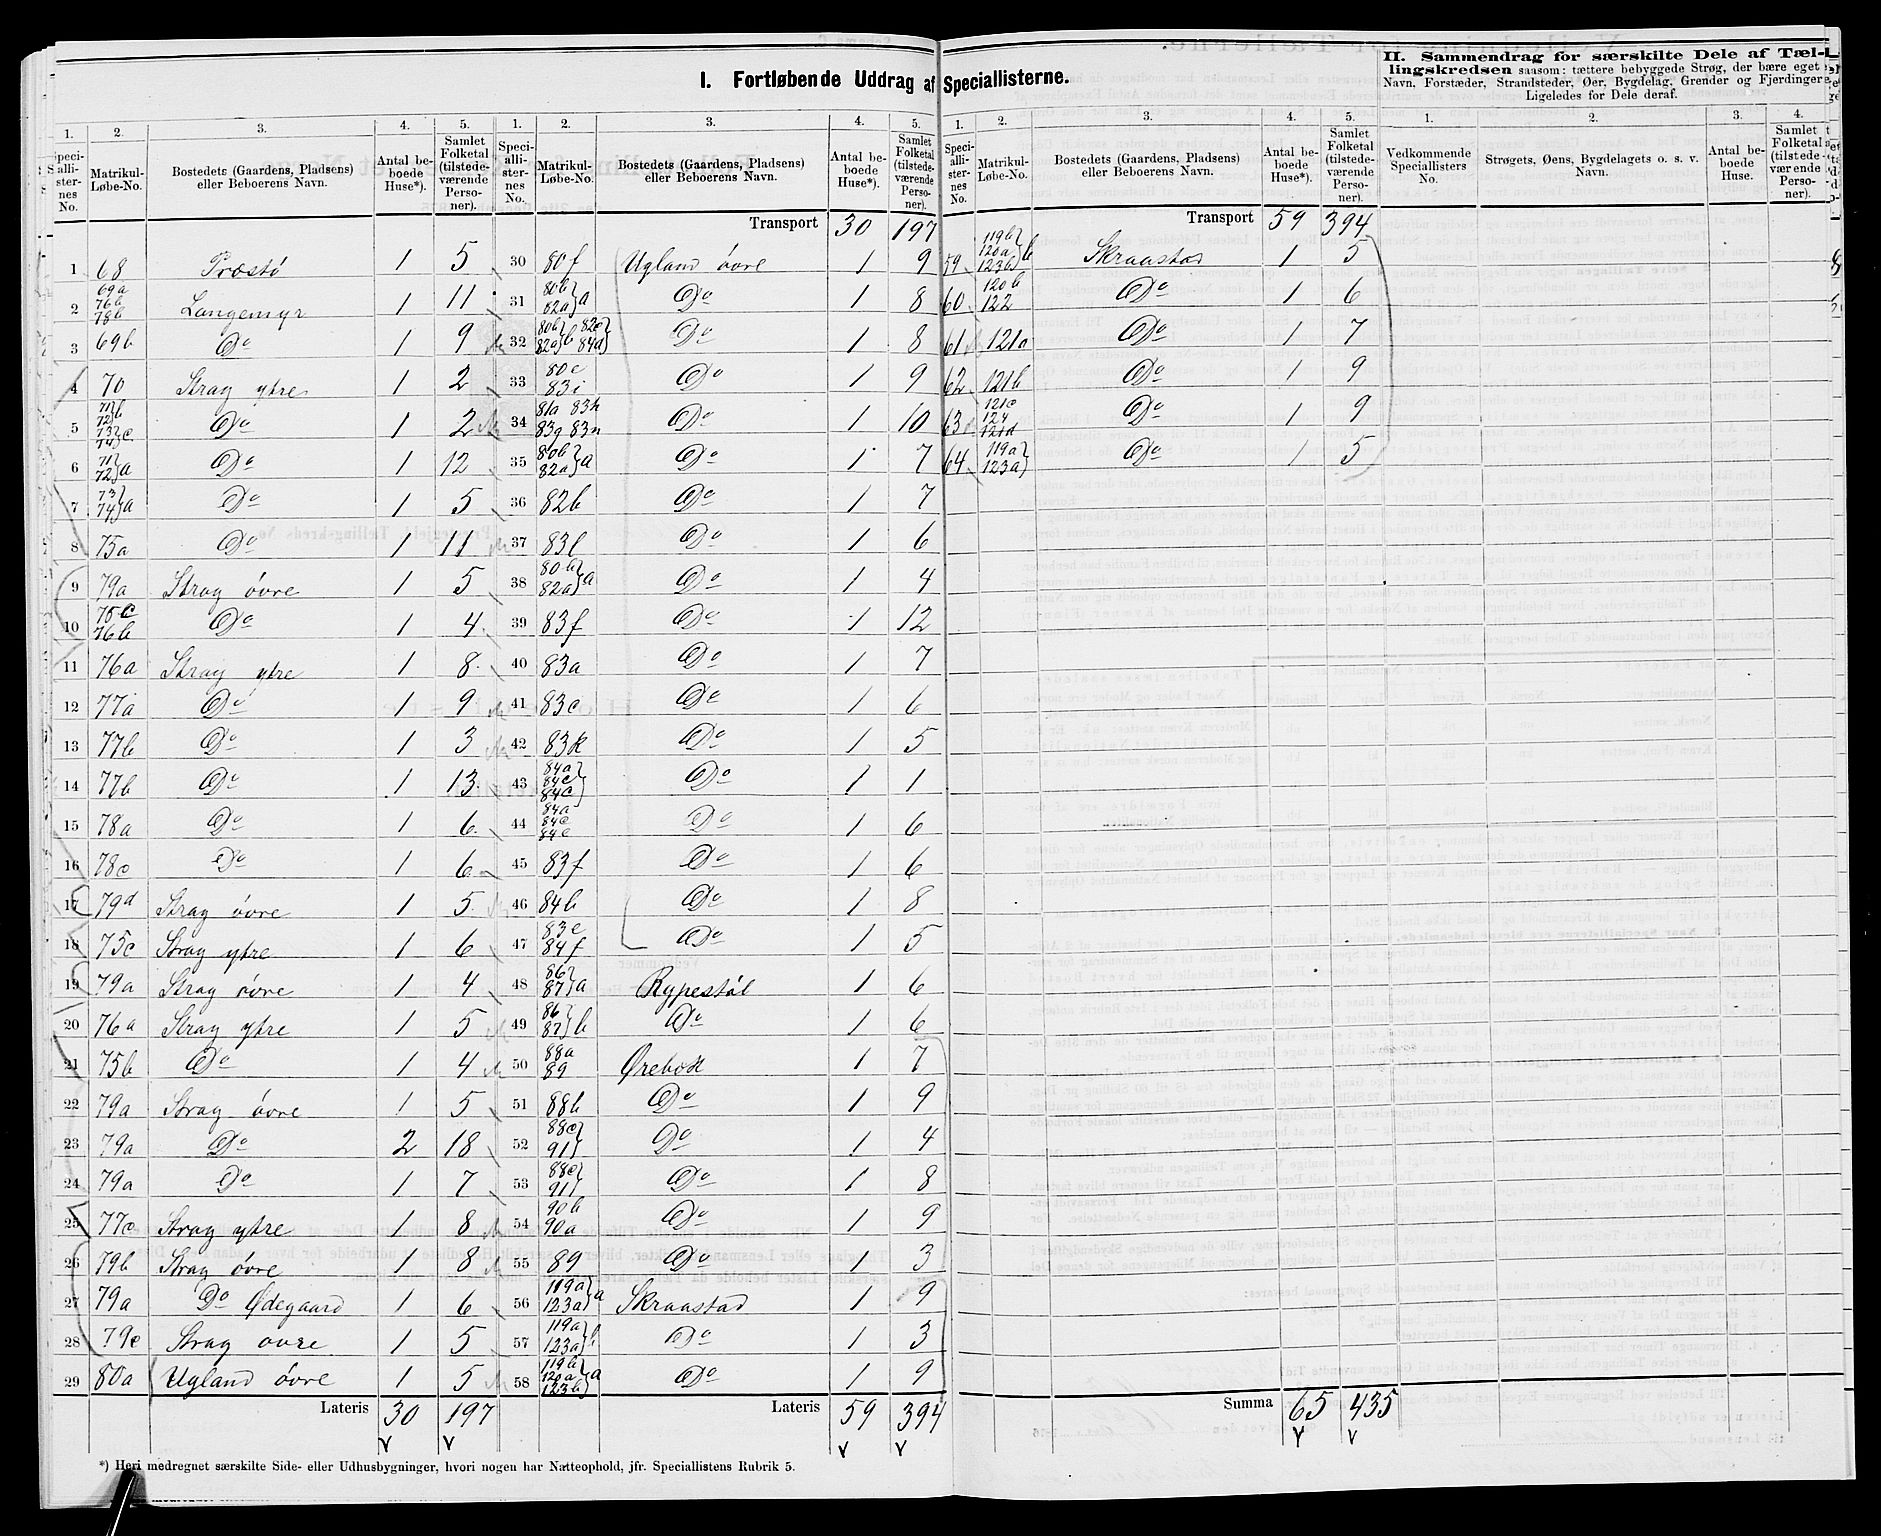 I. Fortløbende Uddrag af Speciallisterne.
II. Sammendrag for særskilte Dele af Tællingskredsen saasom: tættere bebyggede Strøg, der bære eget
Navn, Forstæder, Strandsteder, Øer, Bygdelag, Grender og Fjerdinger.
Ligeledes for Dele deraf.
1. 2. 3. 4. 5. 1. 2. 3. 4. 5. 1. 2. 3. 4. 5. 1. 2. 3. 4.
Speciallisternes No. Matrikul-Løbe-No. Bostedets (Gaardens, Pladsens) eller Beboerens Navn. Antal beboede Huse*). Samlet Folketal (tilstedeværende Personer).
Speciallisternes No. Matrikul-Løbe-No. Bostedets (Gaardens, Pladsens) eller Beboerens Navn. Antal beboede Huse*). Samlet Folketal (tilstedeværende Personer).
Speciallisternes No. Matrikul-Løbe-No. Bostedets (Gaardens, Pladsens) eller Beboerens Navn. Antal beboede Huse*). Samlet Folketal (tilstedeværende Personer).
Vedkommende Speciallisters No. Strøgets, Øens, Bygdelagets o. s. v. Navn. Antal beboede Huse. Samlet Folketal (tilstedeværende Personer).
1 68 Præstø 1 5
2 69a 76b 78b Langemyr 1 11
3 69b Do 1 9
4 70 Strag ytre 1 2
5 71b 72 73 74 c Do 1 2
6 71 72 a Do 1 12
7 73 74 a Do 1 5
8 75a Do 1 11
9 79a Strag övre 1 5
10 75c 76b Do 1 4
11 76a Strag ytre 1 8
12 77a Do 1 9
13 77b Do 1 3
14 77b Do 1 13
15 78a Do 1 6
16 78c Do 1 6
17 79d Strag övre 1 5
18 75c Strag ytre 1 6
19 79a Strag övre 1 4
20 76a Strag ytre 1 5
21 75b Do 1 4
22 79a Strag övre 1 5
23 79a Do 2 18
24 79a Do 1 7
25 77c Strag ytre 1 8
26 79b Strag övre 1 8
27 79a Do Ødegaard 1 6
28 79c Strag ovre 1 5
29 80a Ugland övre 1 5
Lateris 30 197
Transport 30 197
30 80f Ugland övre 1 9
31 80b 82a a Do 1 8
32 80b 82a b 82c 84d Do 1 8
33 80c 83i Do 1 9
34 81a 83h 83g 83n Do 1 10
35 80b 82a a Do 1 7
36 82b Do 1 7
37 83l Do 1 6
38 80b 82a a Do 1 4
39 83f Do 1 12
40 83a Do 1 7
41 83c Do 1 6
42 83k Do 1 5
43 84a 84c 84c Do 1 1
44 84a 84c 84c Do 1 6
45 83f Do 1 6
46 84b Do 1 8
47 83e 84f Do 1 5
48 86 87 a Rypestöl 1 6
49 86 87 b Do 1 6
50 88a 89 Ørebæk 1 7
51 88b Do 1 9
52 88c 91 Do 1 4
53 88c 91 Do 1 8
54 90b 90a Do 1 9
55 89 Do 1 3
56 119a 123a a Skraastad 1 9
57 119a 123a b Do 1 3
58 119b 120a 123b a Do 1 9
Lateris 59 394
Transport 59 394
59 119b 120a 123b b Skraastad 1 5
60 120b 122 Do 1 6
61 121a Do 1 7
62 121b Do 1 9
63 121c 124 121d Do 1 9
64 119a 123a Do 1 5
Summa 65 435
*) Heri medregnet særskilte Side- eller Udhusbygninger, hvori nogen har Natteophold, jfr. Speciallistens Rubrik 5.